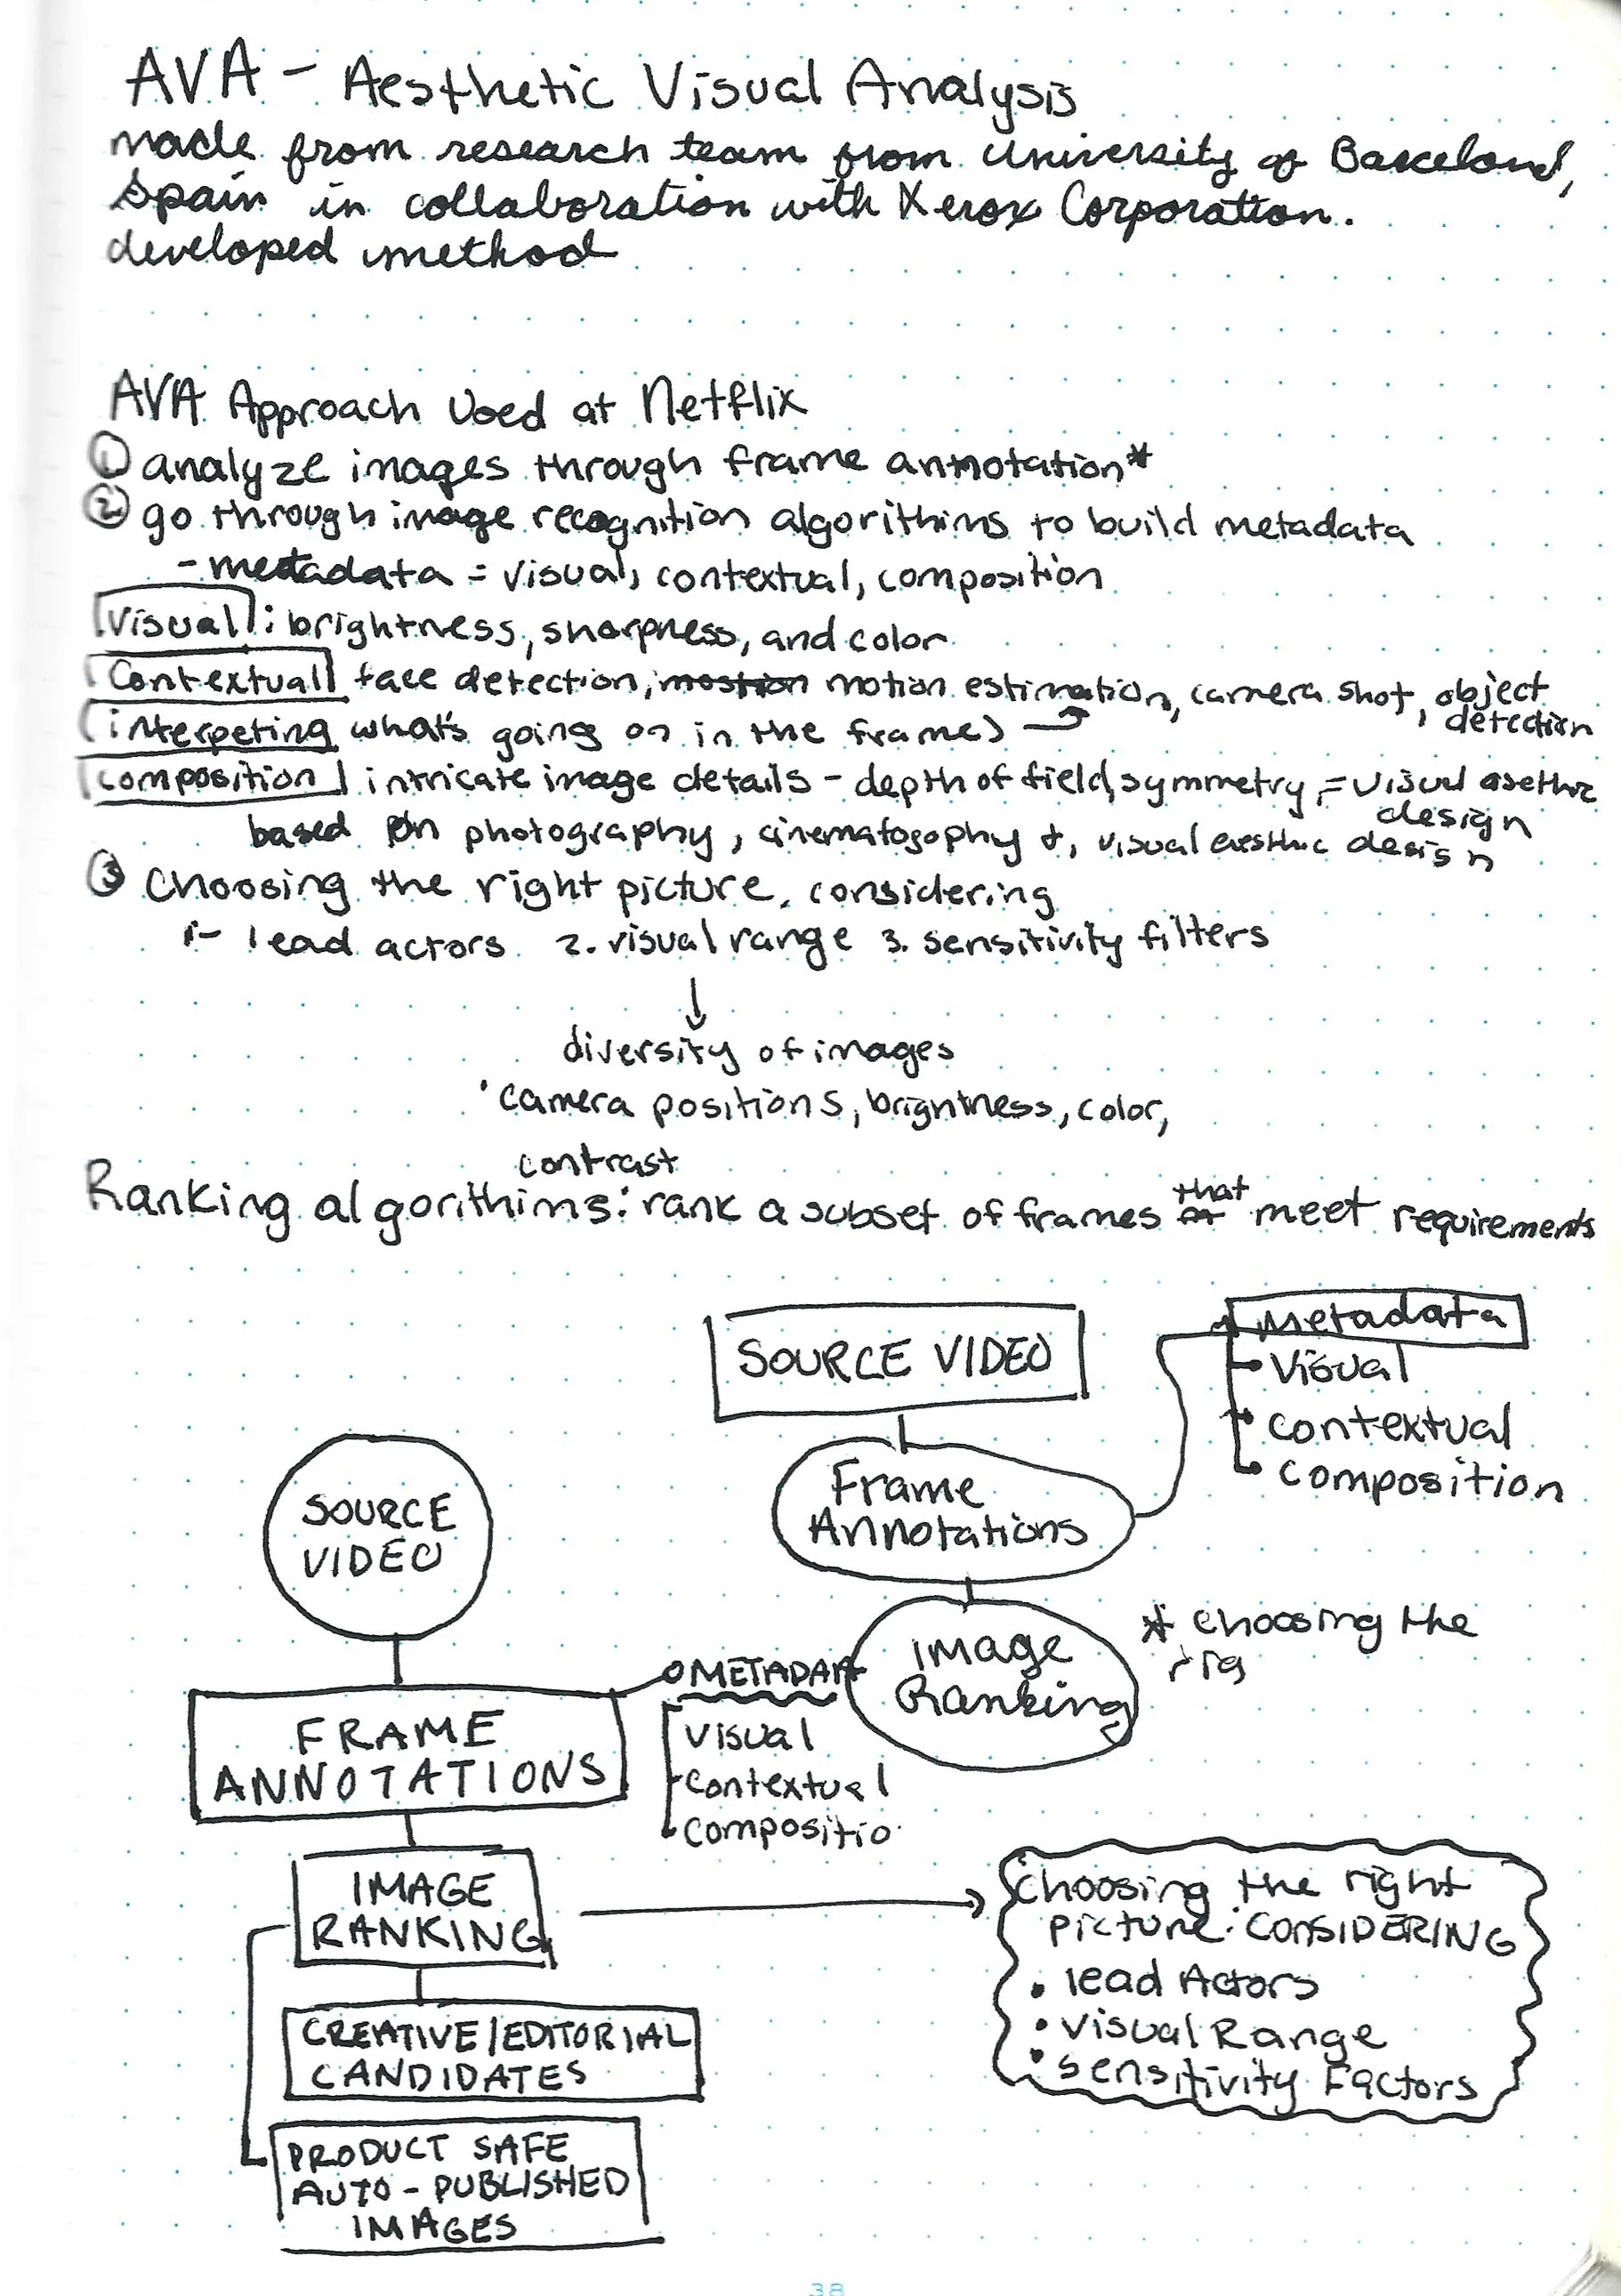 AVA - Aesthetic Visual Analysis
made from research team from University of Barcelona,
Spain in collaboration with Xerox Corporation.
developed method
AVA Approach Used at Netflix
① analyze images through frame annotation*
② go through image recognition algorithims to build metadata
- metadata = visual, contextual, composition
Visual : brightness, sharpness, and color
Contextual face detection, motion estimation, camera shot, object
detection
(interpeting what's going on in the frame)
composition intricate image details - depth of field, symmetry, = visual
design
based on photography, cinematogophy +, visual design
③ Choosing the right picture, considering
1- lead actors 2. visual range 3. sensitivity filters
↓
diversity of images
· camera positions, brightness, color,
contrast
Ranking algorithims: rank a subset of frames that meet requirements
SOURCE VIDEO
metadata
Visual
contextual
composition
Frame
Annotations
SOURCE
VIDEO
Image
Ranking
* choosing the
rig
METADATA
Visual
Contextual
Compositio
FRAME
ANNOTATIONS
IMAGE
RANKING
Choosing the right
picture: CONSIDERING
• lead Actors
• Visual Range
• sensitivity Factors
CREATIVE/EDITORIAL
CANDIDATES
PRODUCT SAFE
AUTO-PUBLISHED
IMAGES
38